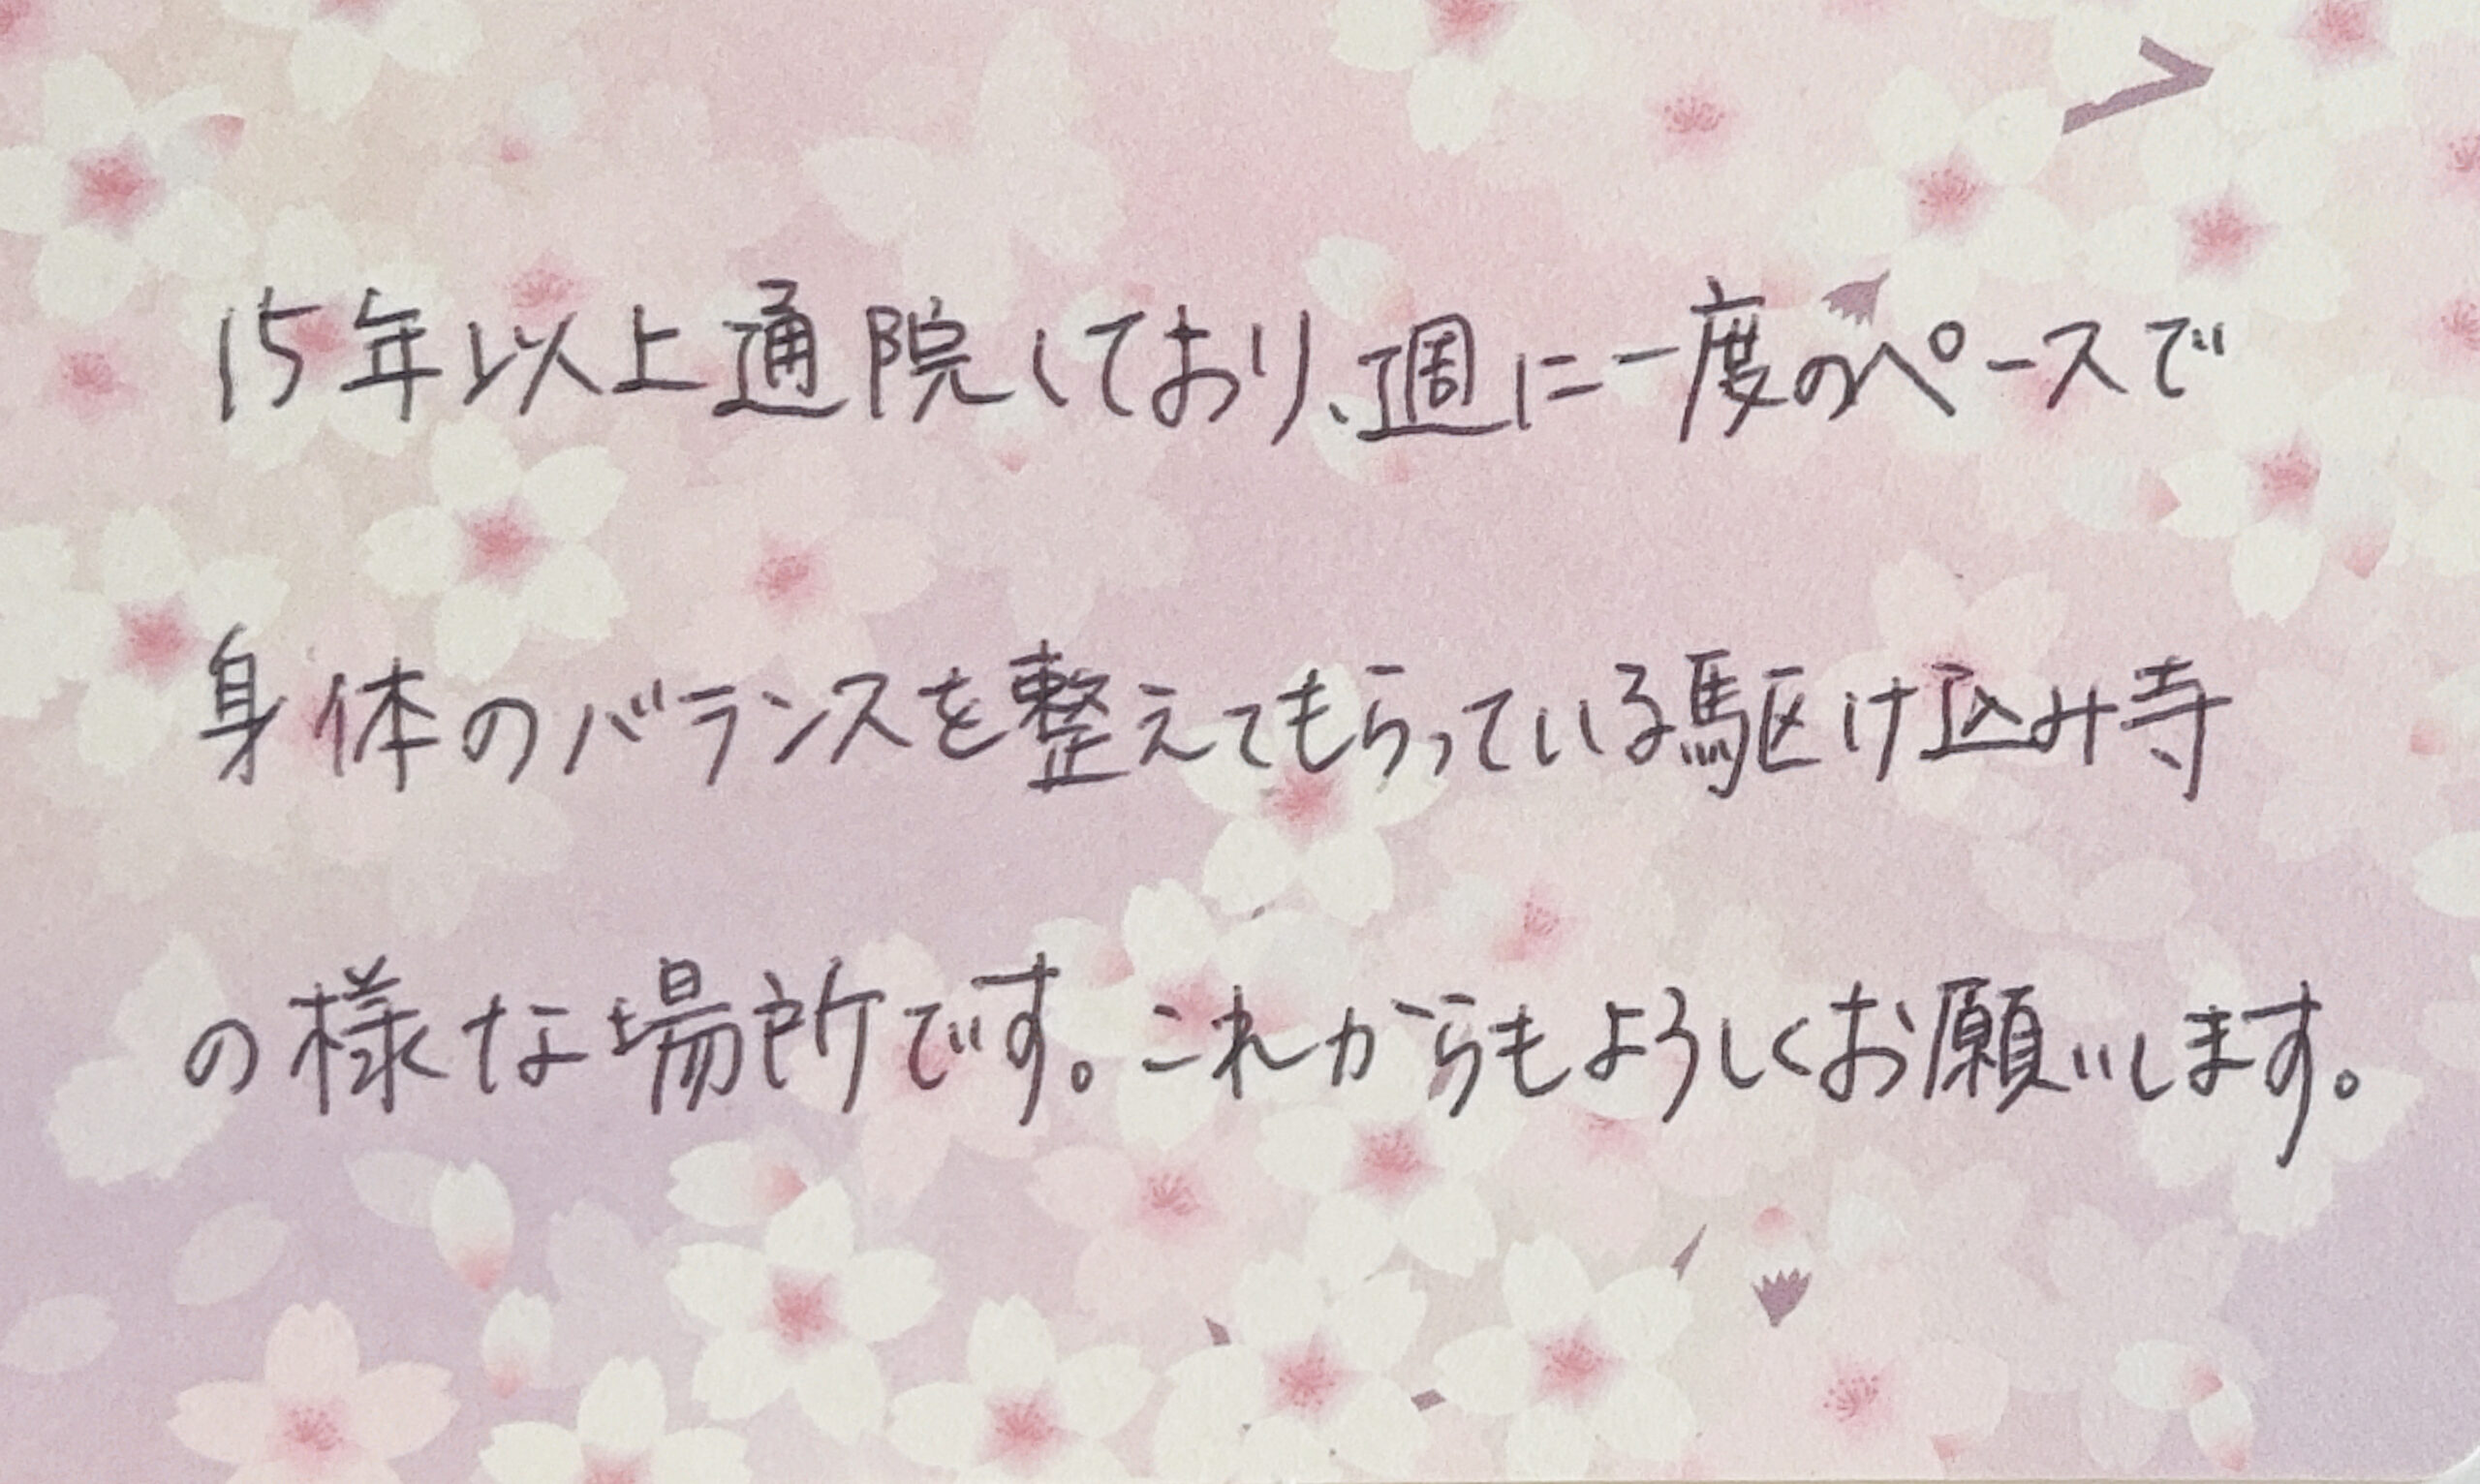 15年以上通院しており、週に一度のペースで
身体のバランスを整えてもらっている駆け込み寺
の様な場所です。これからもよろしくお願いします。